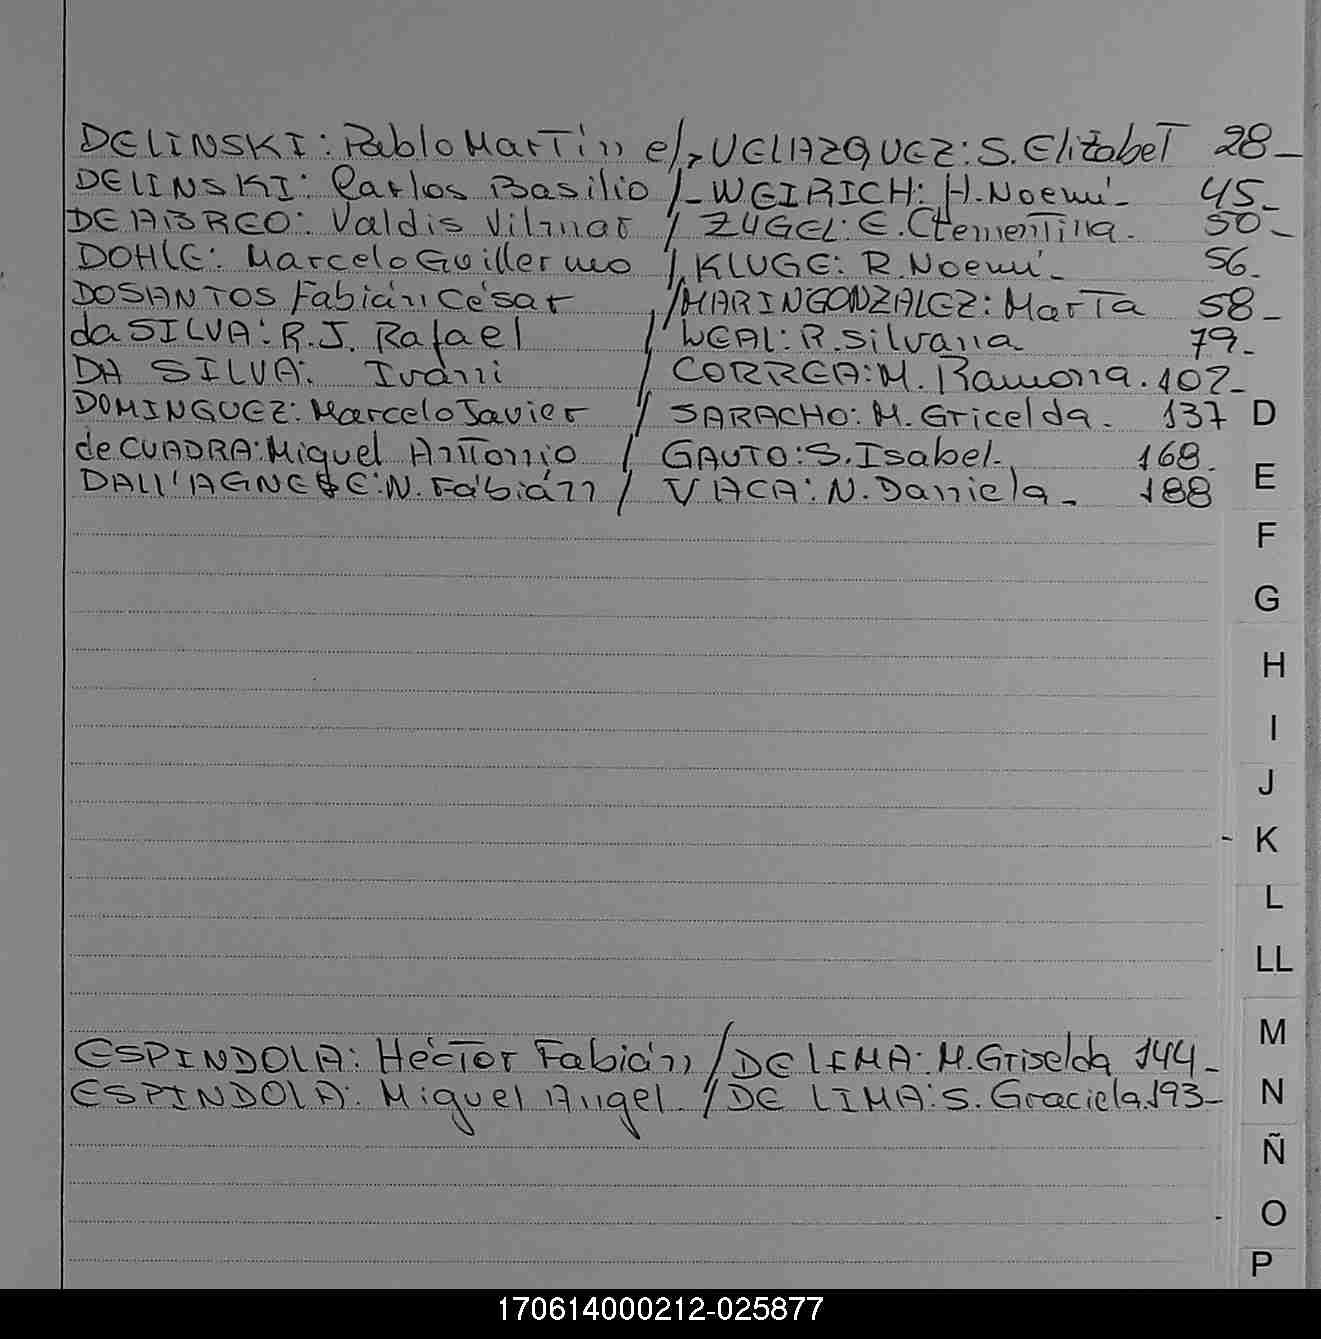 DELINSKI: Pablo Martin c/ VELAZQUEZ: S. Elizabet 28_
DELINSKI: Carlos Basilio /_ WEIRICH: H. Noemí_ 45_
DE ABREO: Valdis Vilmar / ZUGEL: E. Clementina. 50_
DOHLE: Marcelo Guillermo / KLUGE: R. Noemí_ 56_
DOSANTOS Fabián César / MARINGONZALEZ: Marta 58_
da SILVA: R.J. Rafael / LEAL: R. Silvana 79_
DA SILVA: Ivani / CORREA: M. Ramona. 102_
DOMINGUEZ: Marcelo Javier / SARACHO: M. Gricelda. 137 D
de CUADRA: Miguel Antonio / GAUTO: S. Isabel. 168_
DALL'AGNESE: N. Fabián / VACA: N. Daniela_ 188
E
F
G
H
I
J
K
L
LL
ESPINDOLA: Héctor Fabián / DE LIMA: M. Griselda 144_
M
ESPINDOLA: Miguel Angel / DE LIMA: S. Graciela. 193_
N
Ñ
O
P
170614000212-025877